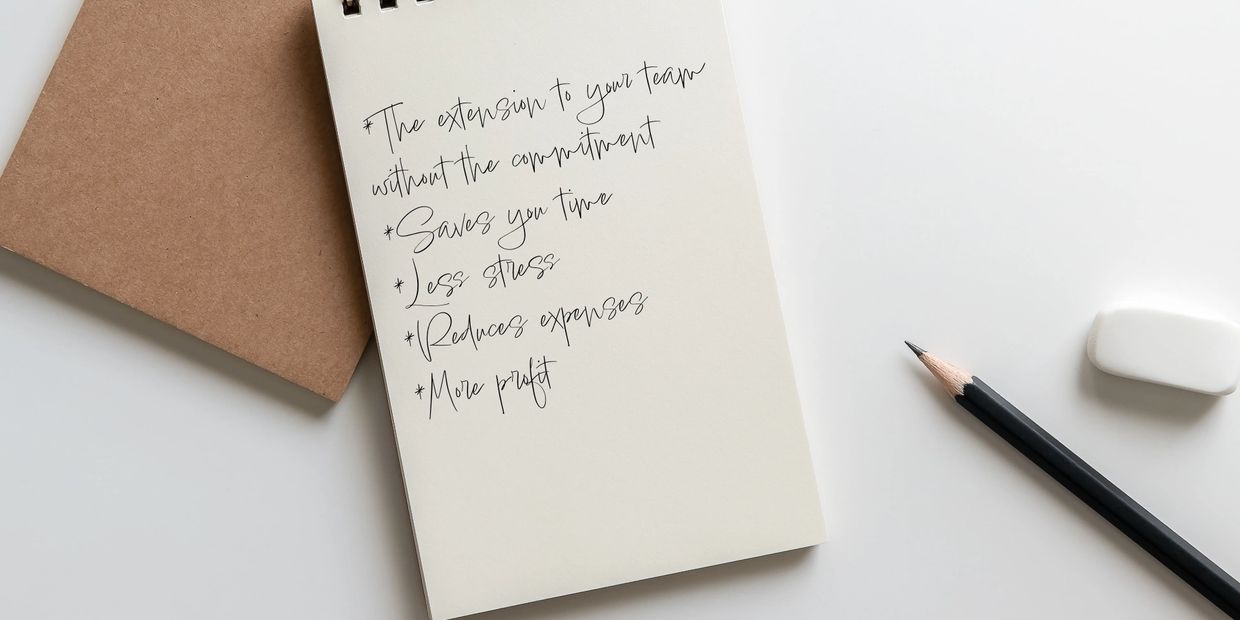 *The extension to your team
without the commitment
*Saves you time
*Less stress
*Reduces expenses
*More profit